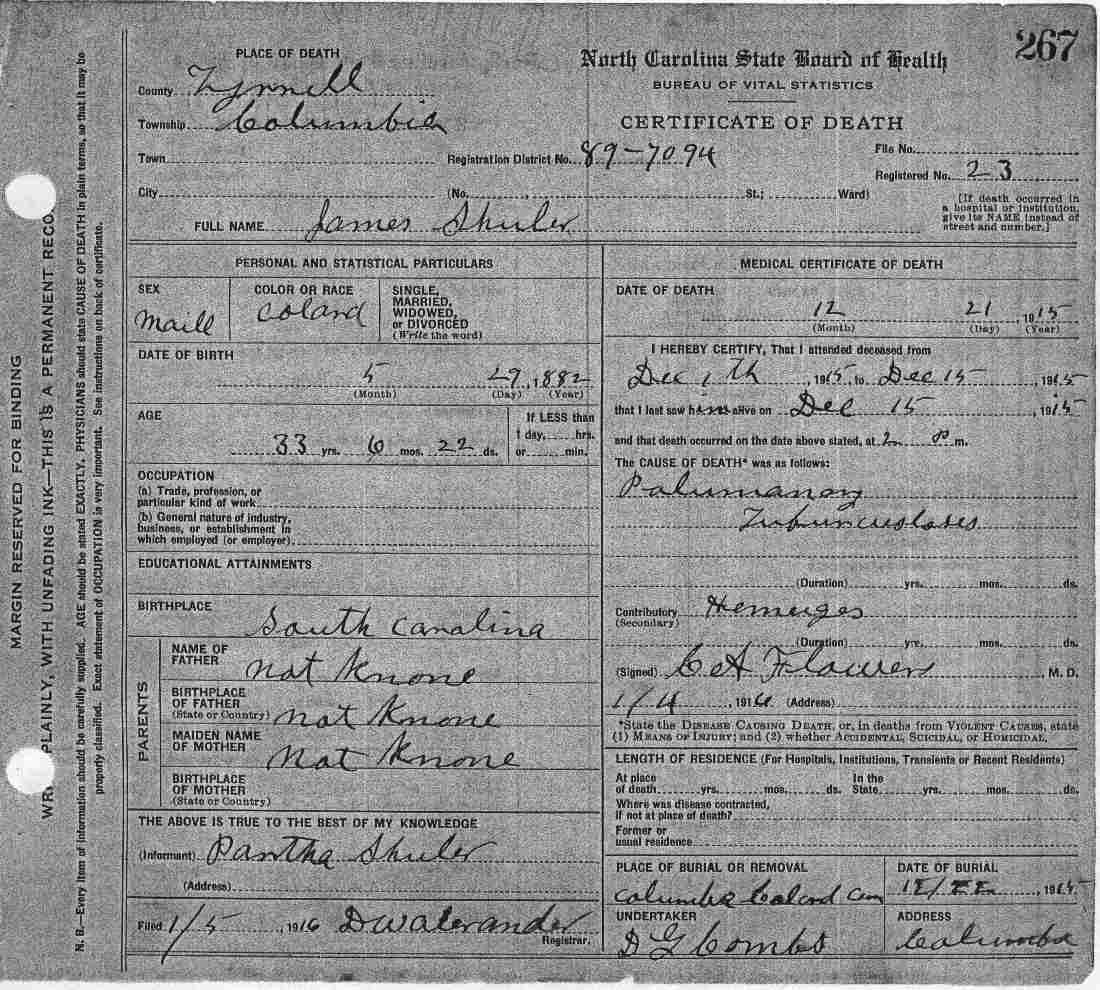 267
PLACE OF DEATH
County Tyrrell
Township Columbia
Town
City
North Carolina State Board of Health
BUREAU OF VITAL STATISTICS
CERTIFICATE OF DEATH
Registration District No. 89-7094
File No.
Registered No. 23
(No. St.; Ward)
[If death occurred in
a hospital or institution,
give its NAME instead of
street and number.]
FULL NAME James Shuler
PERSONAL AND STATISTICAL PARTICULARS
SEX
maill
COLOR OR RACE
Colard
SINGLE,
MARRIED,
WIDOWED,
or DIVORCED
(Write the word)
DATE OF BIRTH
5 29, 1882
(Month) (Day) (Year)
AGE
33 yrs. 6 mos. 22 ds.
If LESS than
1 day, hrs.
or min.
OCCUPATION
(a) Trade, profession, or
particular kind of work
(b) General nature of industry,
business, or establishment in
which employed (or employer)
EDUCATIONAL ATTAINMENTS
BIRTHPLACE
South Carolina
PARENTS
NAME OF
FATHER
not Knone
BIRTHPLACE
OF FATHER
(State or Country) not Knone
MAIDEN NAME
OF MOTHER
not Knone
BIRTHPLACE
OF MOTHER
(State or Country)
THE ABOVE IS TRUE TO THE BEST OF MY KNOWLEDGE
(Informant) Pantha Shuler
(Address)
Filed 1/5 1916 D W Alexander
Registrar.
MEDICAL CERTIFICATE OF DEATH
DATE OF DEATH
12 21, 1915
(Month) (Day) (Year)
I HEREBY CERTIFY, That I attended deceased from
Dec 1 th, 1915, to Dec 15, 1915
that I last saw him alive on Dec 15, 1915
and that death occurred on the date above stated, at 2 P m.
The CAUSE OF DEATH* was as follows:
(Duration) yrs. mos. ds.
Contributory Hemeriges
(Secondary)
(Duration) yrs. mos. ds.
(Signed) C A Flowers, M. D.
1/4, 1916 (Address)
*State the DISEASE CAUSING DEATH, or, in deaths from VIOLENT CAUSES, state
(1) MEANS OF INJURY; and (2) whether ACCIDENTAL, SUICIDAL, or HOMICIDAL.
LENGTH OF RESIDENCE (For Hospitals, Institutions, Transients or Recent Residents)
At place
of death yrs. mos. ds.
In the
State yrs. mos. ds.
Where was disease contracted,
if not at place of death?
Former or
usual residence
PLACE OF BURIAL OR REMOVAL
Columba Colard Cem
DATE OF BURIAL
12/22, 1915
UNDERTAKER
D G Combs
ADDRESS
Columba
MARGIN RESERVED FOR BINDING
PLAINLY, WITH UNFADING INK—THIS IS A PERMANENT RECO
N. B.—Every item of information should be carefully supplied. AGE should be stated EXACTLY. PHYSICIANS should state CAUSE OF DEATH in plain terms, so that it may be
properly classified. Exact statement of OCCUPATION is very important. See instructions on back of certificate.